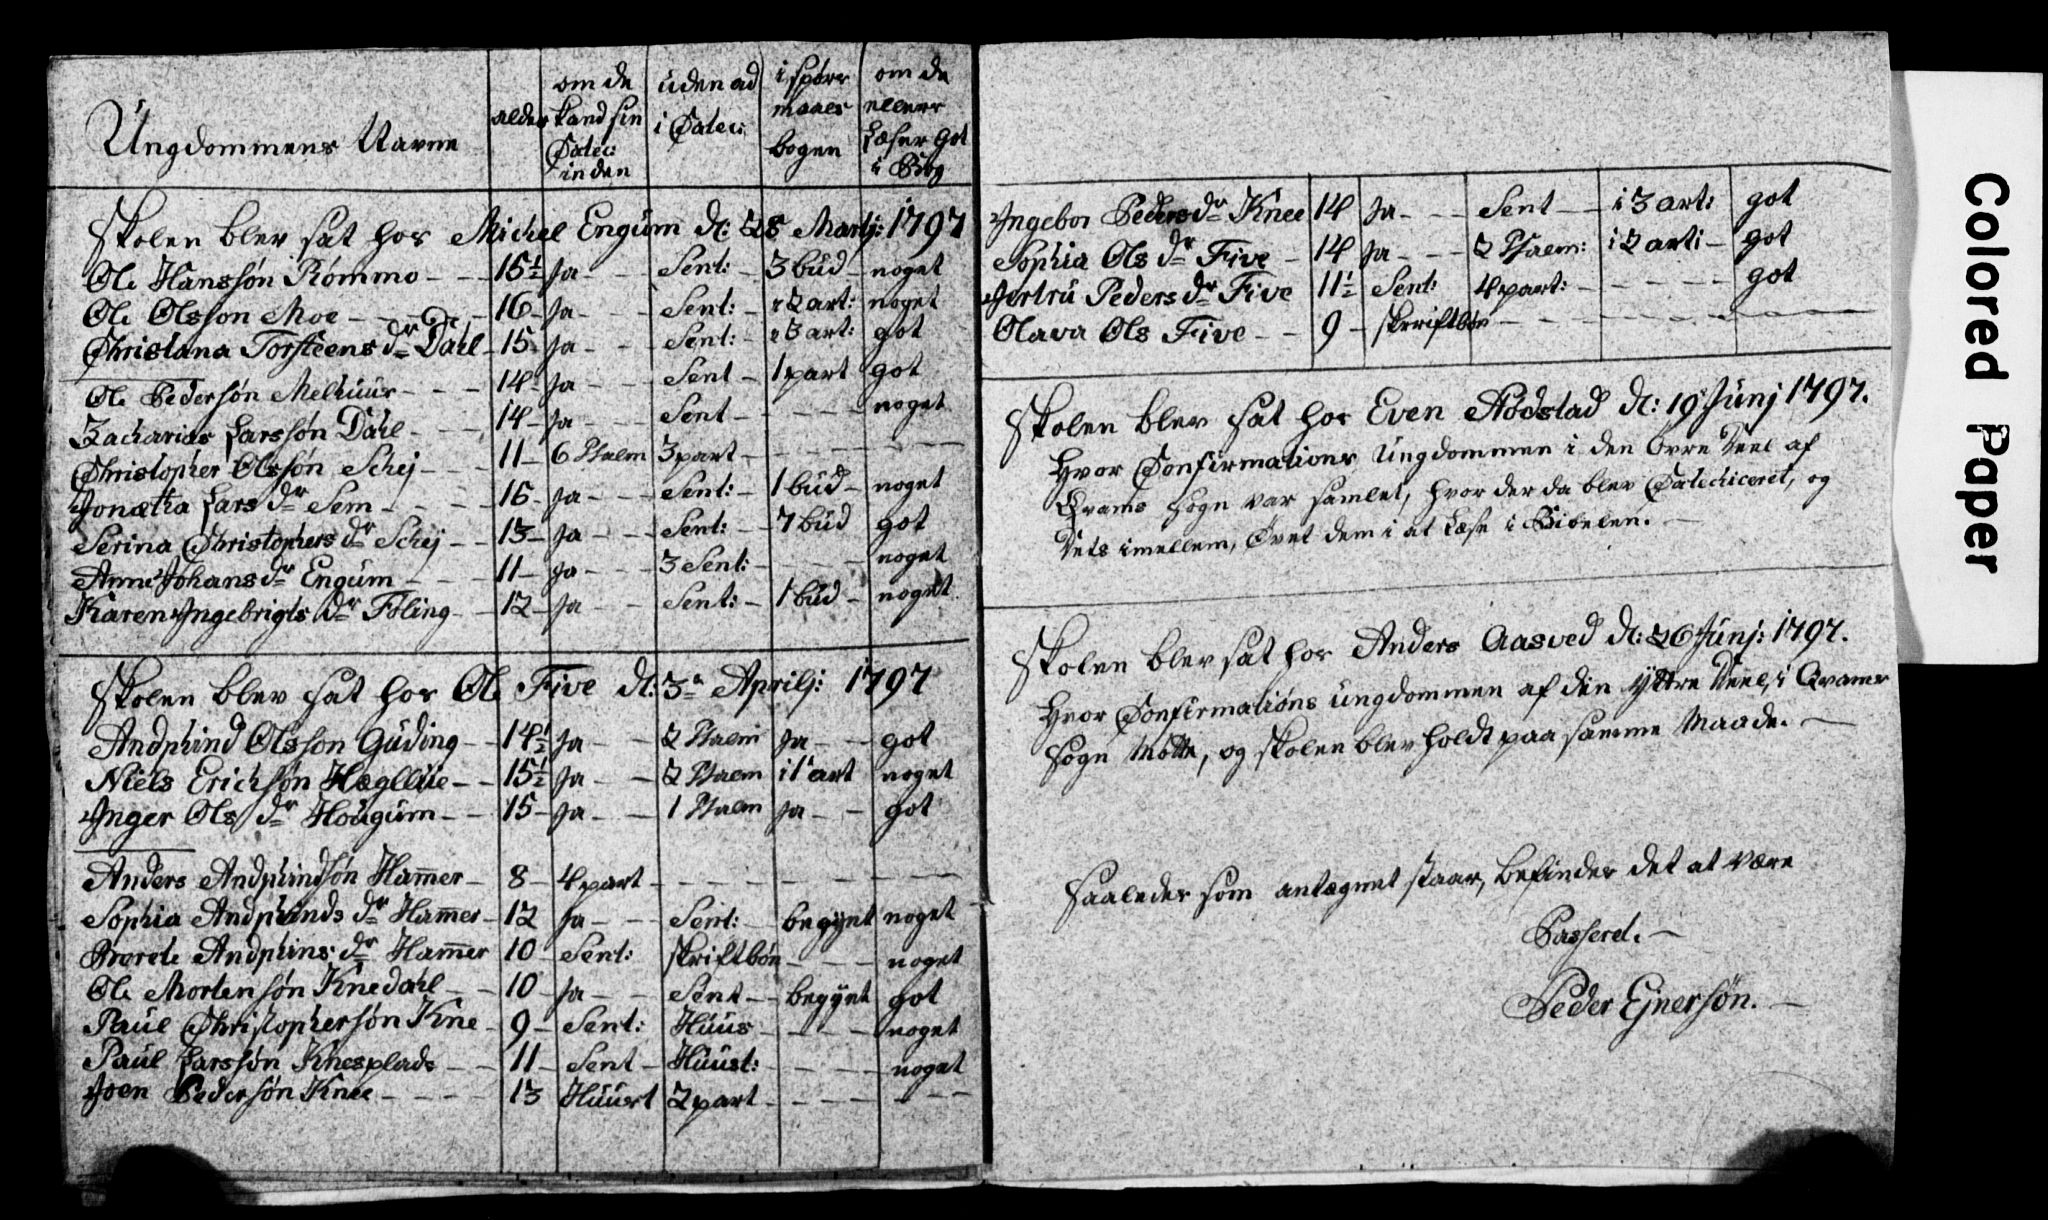 Ungdommens Navne | alder | om de kand sin Catec: inden | uden ad i Catec: | i spørs maals bogen | om de ellers læser got i Bog
Skolen blev sat hos Michel Engum d: 28 Martj: 1797
Ole Hanssøn Rømmo - - 15½ Ja - - Sent: - 3 bud - noget
Ole Olsson Moe - - - 16 - Ja - - Sent: - 2 art: noget
Christana Torsteens dr Dahl - 15 - Ja - - Sent: - 3 art: got
Ole Pedersøn Melhuus - - - 14 - Ja - - Sent - 1 part got
Zacharias Larssøn Dahl - - - 14 - Ja - - Sent - - - - noget
Christopher Olssøn Schej - - - 11 - 6 Psalm 3 part - - - - -
Jonætha Lars dr Sem - - - 16 - Ja - - Sent: - 1 bud - noget
Serina Christophers dr Schej - - 13 - Ja - - Sent: - 7 bud got
Anne Johans dr Engum - - - 11 - Ja - - 3 Sent: - - - noget
Karen Ingebrigts dr Føling - - 12 - Ja - - Sent: - 1 bud - noget
Skolen blev sat hos Ole Five d: 3 Aprilj: 1797
Andphind Olsson Guding - - 14½ Ja - - 2 Psalm Ja - - got
Niels Erichsøn Hægllie - - 15½ Ja - - 2 Psalm i 1 art noget
Inger Ols dr Hougum - - 15 - Ja - - 1 Psalm Ja - - got
Anders Andphindsøn Ham̅er - 8 - 4 part - - - - - - -
Sophia Andphinds dr Ham̅er - 12 Ja - - Sent: - begynt noget
Berete Andphins: dr Ham̅er 10 - Sent: skriftbøn - - - noget
Ole Mortensøn Knedahl - - 10 - Ja - - Sent - begynt got
Paul Christophersøn Kne - 9 - Sent: Huus - - - - noget
Paul Larssøn Knesplads - - 11 - Sent - Huust: - - - noget
Joen Pedersøn Knee - - - - 13 Huust 2 part - - - - - -
Ingebor Peders dr Knee 14 Ja - - Sent - - i 3 art: got
Sophia Ols dr Five - 14 Ja - - 2 Psalm: i 2 art: - got
Jertru Peders dr Five 11½ Sent: 4 part: - - - - - got
Olava Ols Five - - 9 - skriftbøn - - - - - -
Skolen blev sat hos Even Aódstad d: 19 Junj 1797.
Hvor Confirmations Ungdommen i den Øvre Deel af
Qvams Sogn var samlet, hvor der da blev Catechiceret, og
Dets imellem, Øvet dem i at Læse i Bibelen. -
Skolen blev sat hos Anders Aasved d: 26 Junj: 1797.
Hvor Confirmations ungdommen af den Yttre Deel, i Qvams
Sogn Møtte, og skolen blev holdt paa samme Maade. -
Saaledes som antægnet staar, befindes det at være
Passeret. -
Peder Ejnersøn. -
Colored Paper